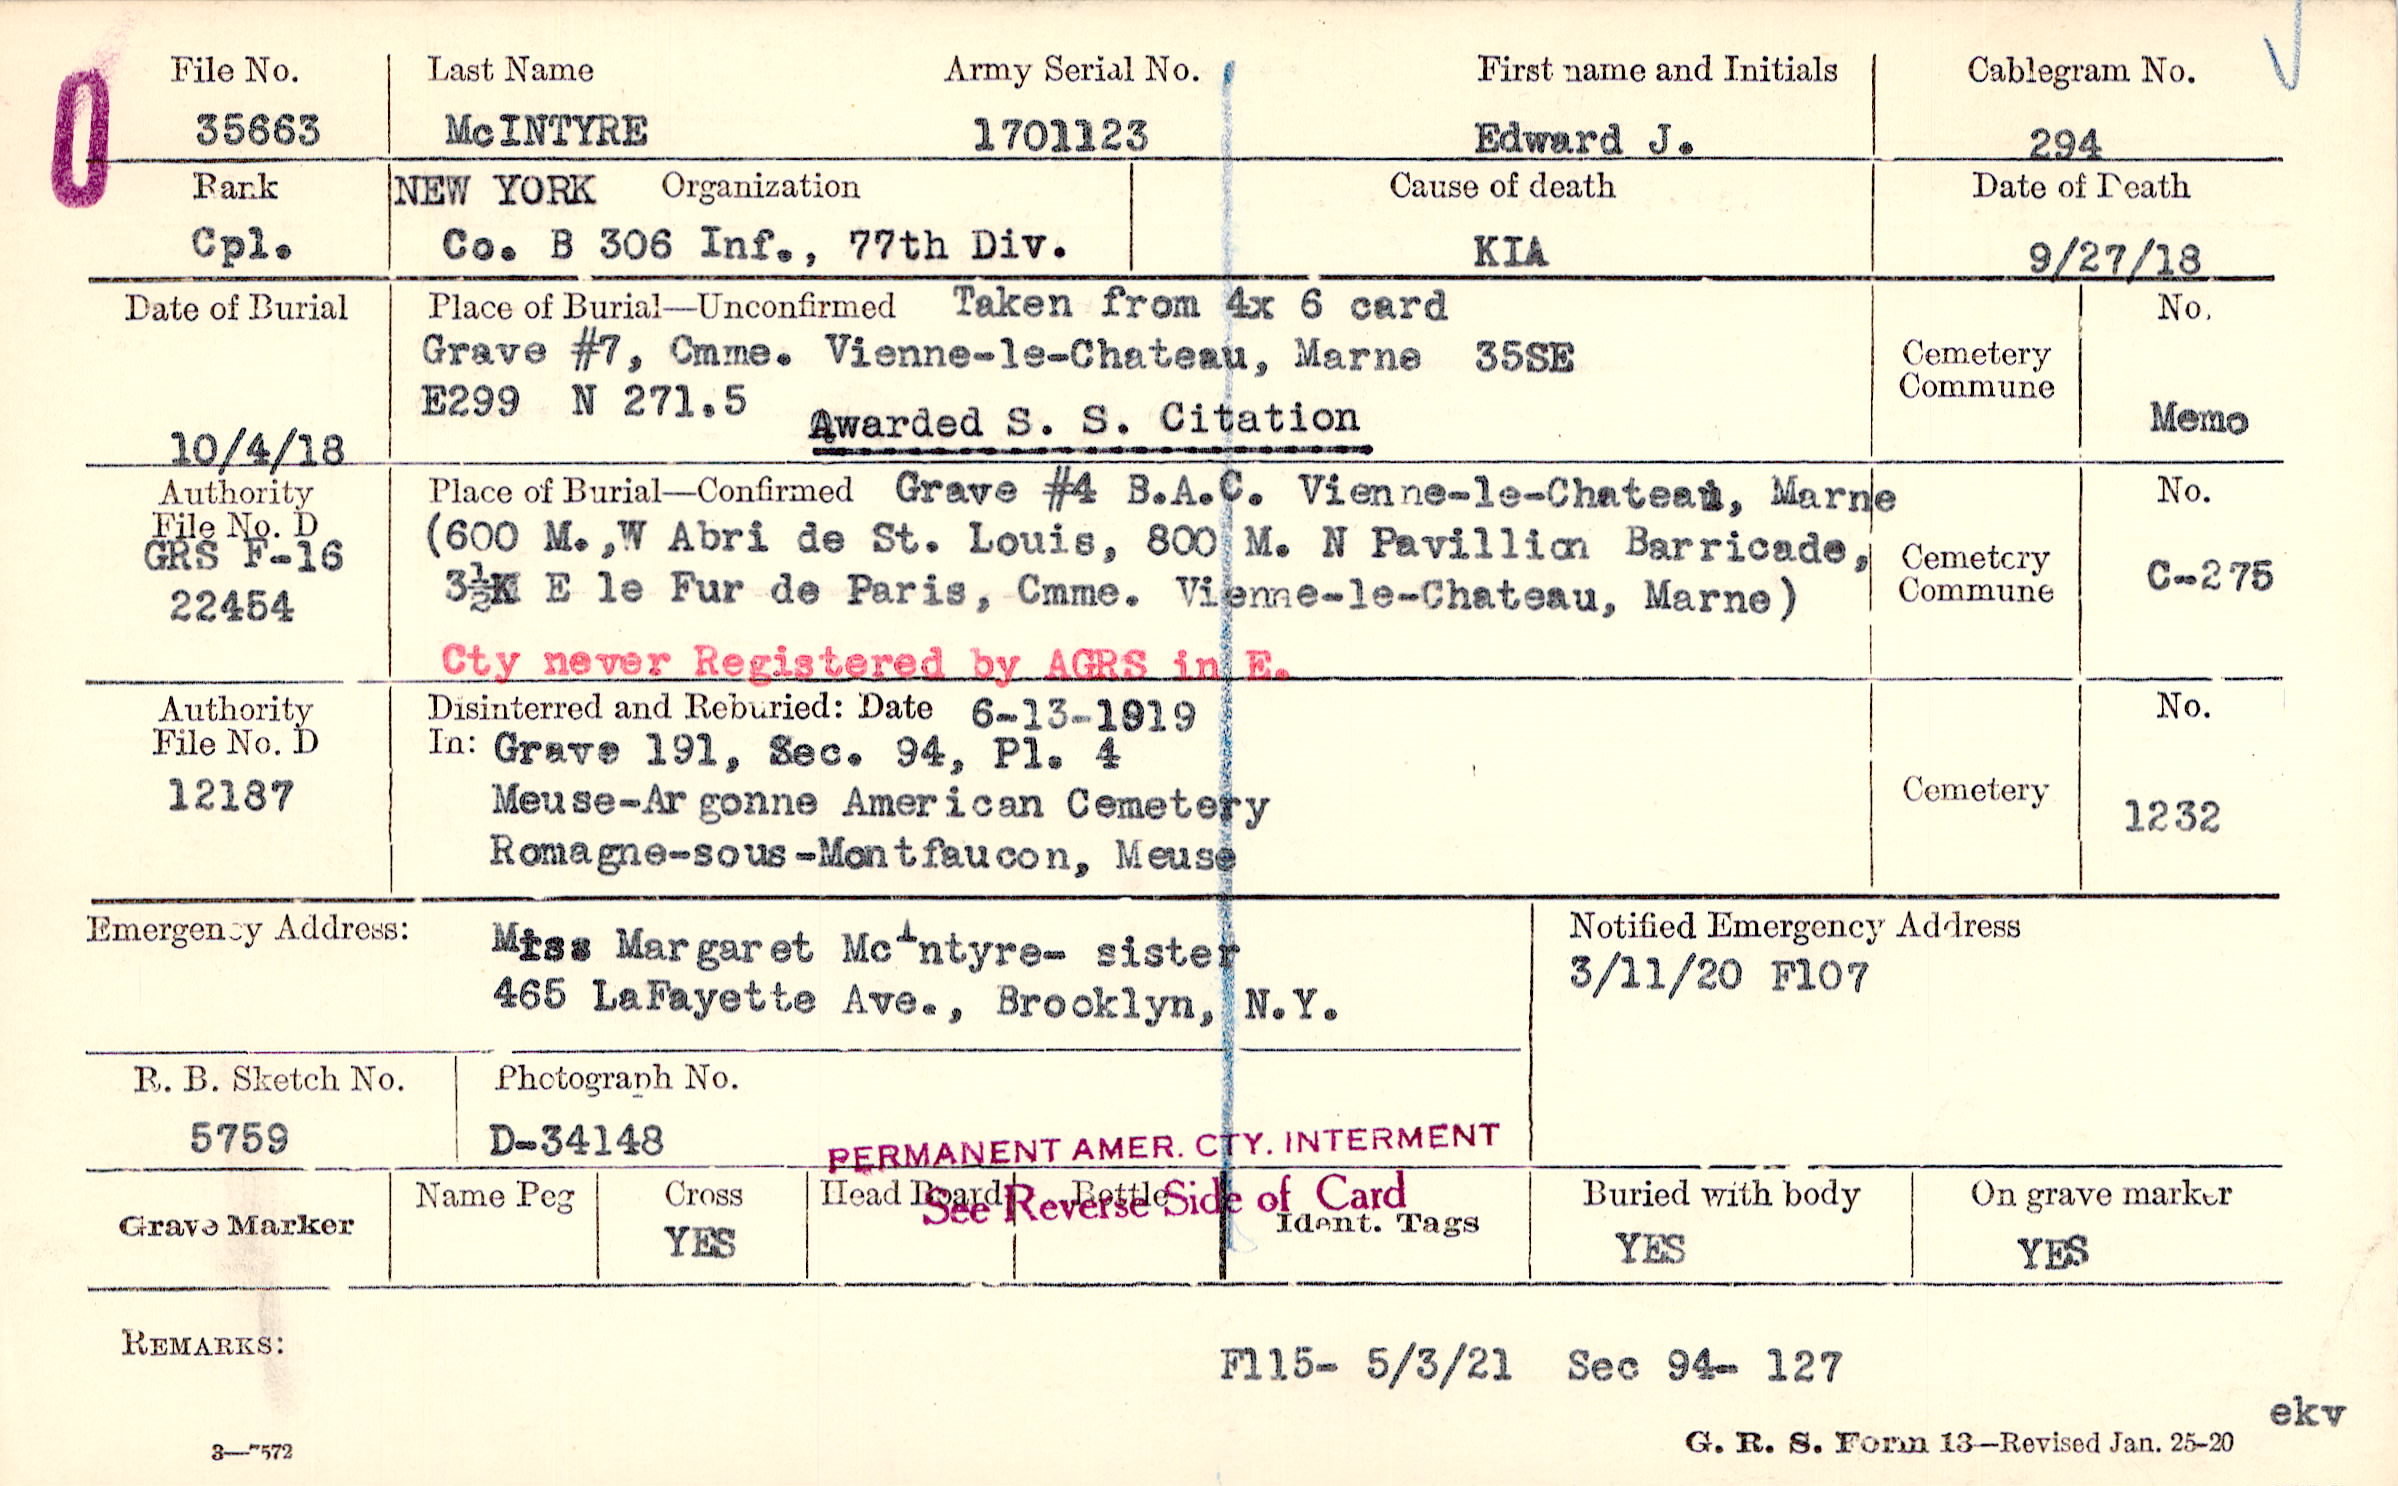 File No. Last Name Army Serial No. First name and Initials Cablegram No.
35663 McINTYRE 1701123 Edward J. 294
Rank NEW YORK Organization Cause of death Date of Death
Cpl. Co. B 306 Inf., 77th Div. KIA 9/27/18
Date of Burial Place of Burial—Unconfirmed Taken from 4x 6 card No.
Grave #7, Cmme. Vienne-le-Chateau, Marne 35SE Cemetery
E299 N 271.5 Commune
Awarded S. S. Citation Memo
10/4/18
Authority Place of Burial—Confirmed Grave #4 B.A.C. Vienne-le-Chateau, Marne No.
File No. D (600 M.,W Abri de St. Louis, 800 M. N Pavillion Barricade,
GRS F-16 Cemetery
22454 3½K E le Fur de Paris, Cmme. Vienne-le-Chateau, Marne) Commune C-275
Cty never Registered by AGRS in E.
Authority Disinterred and Reburied: Date 6-13-1919 No.
File No. D In: Grave 191, Sec. 94, Pl. 4
12187 Meuse-Argonne American Cemetery Cemetery 1232
Romagne-sous-Montfaucon, Meuse
Emergency Address: Miss Margaret McIntyre- sister Notified Emergency Address
465 LaFayette Ave., Brooklyn, N.Y. 3/11/20 F107
R. B. Sketch No. Photograph No.
5759 D-34148 PERMANENT AMER. CTY. INTERMENT
Grave Marker Name Peg Cross Head Board Bottle Ident. Tags Buried with body On grave marker
See Reverse Side of Card
YES YES YES
REMARKS:
F115- 5/3/21 Sec 94- 127
ekv
3—7572 G. R. S. Form 13—Revised Jan. 25-20